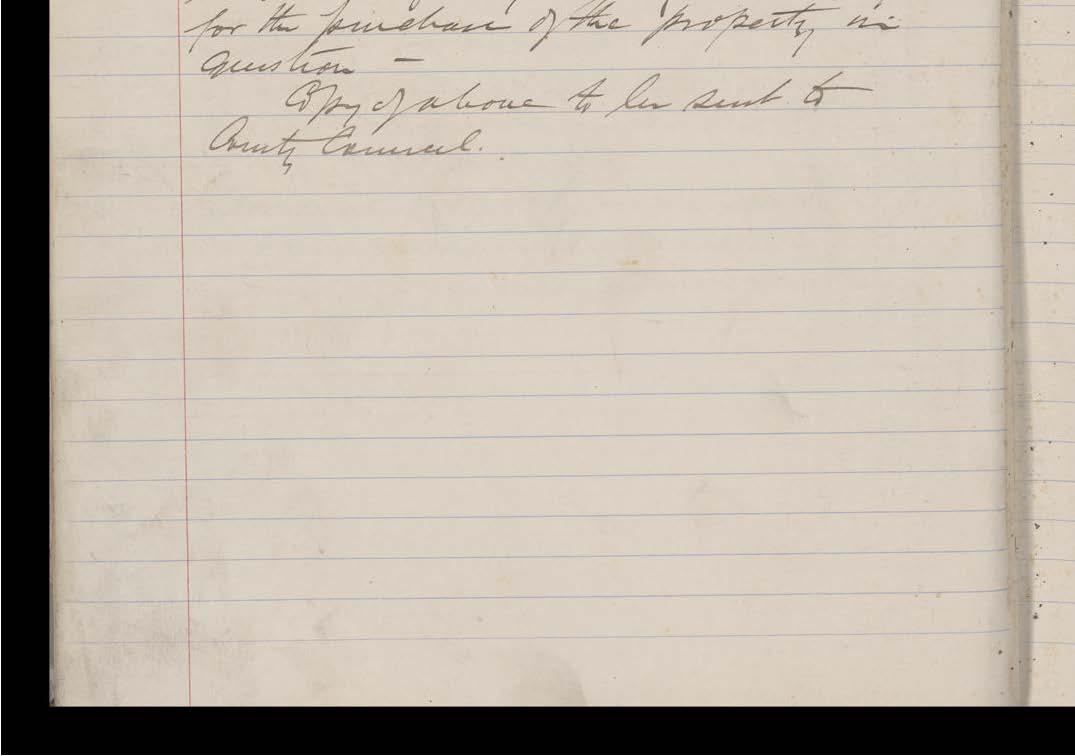 for the purchase of the property in
question –
Copy of above to be sent to
County Council.